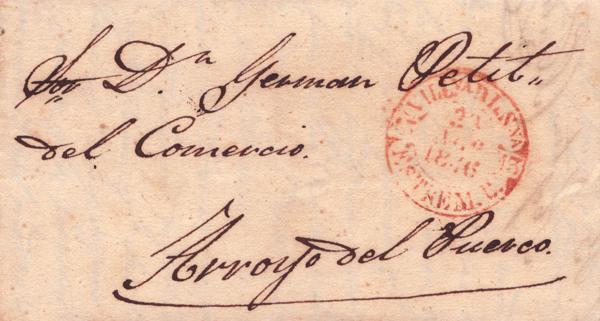 Sor Dn German Petit
del Comercio.
Arroyo del Puerco.
1846
ESTREM.C.